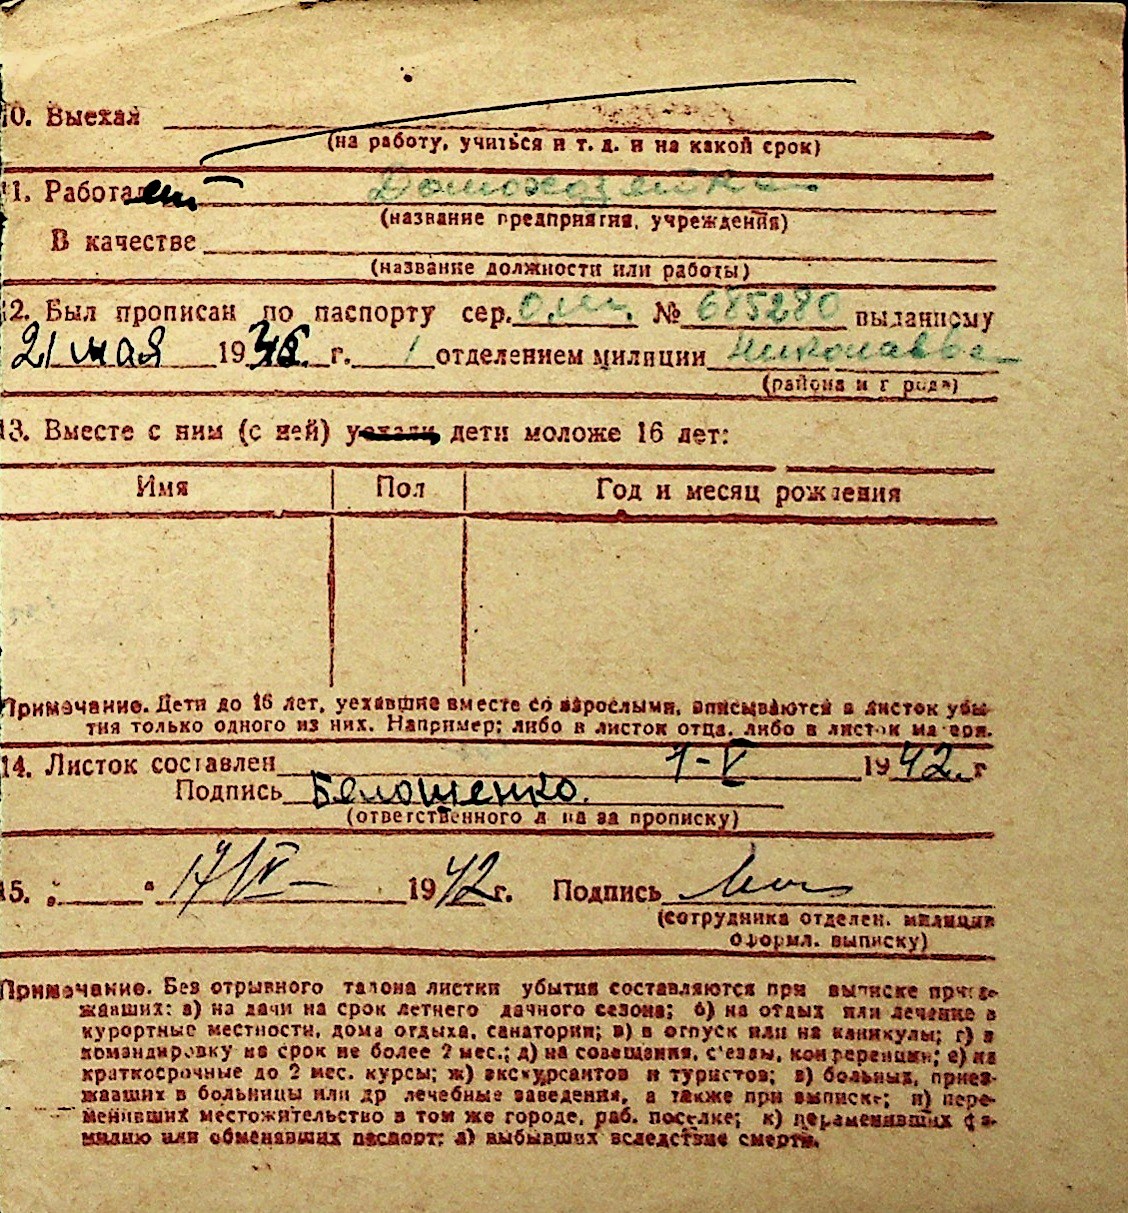 10. Выехал
(на работу, учиться и т. д. и на какой срок)
11. Работает Домохозяйка
(название предприятия, учреждения)
В качестве
(название должности или работы)
12. Был прописан по паспорту сер. № 685280 выданному
21 мая 19 г. 1 отделением милиции
(района и города)
13. Вместе с ним (с ней) уехали дети моложе 16 лет:
Имя Пол Год и месяц рождения
Примечание. Дети до 16 лет, уехавшие вместе со взрослыми, вписываются в листок убы-
тия только одного из них. Например: либо в листок отца, либо в листок матери.
14. Листок составлен 1-V 1942 г
Подпись Белошенко.
(ответственного лица за прописку)
15. „ “ 17/V 1942 г. Подпись
(сотрудника отделен. милиции
оформл. выписку)
Примечание. Без отрывного талона листки убытия составляются при выписке приез-
жавших: а) на дачи на срок летнего дачного сезона; б) на отдых или лечение в
курортные местности, дома отдыха, санатории; в) в отпуск или на каникулы; г) в
командировку на срок не более 2 мес.; д) на совещания, с'езды, конференции; е) на
краткосрочные до 2 мес. курсы; ж) экскурсантов и туристов; з) больных, приез-
жавших в больницы или др лечебные заведения, а также при выписке; и) пере-
менивших местожительство в том же городе, раб. поселке; к) переменивших фа-
милию или обменавших паспорт; л) выбывших вследствие смерти.